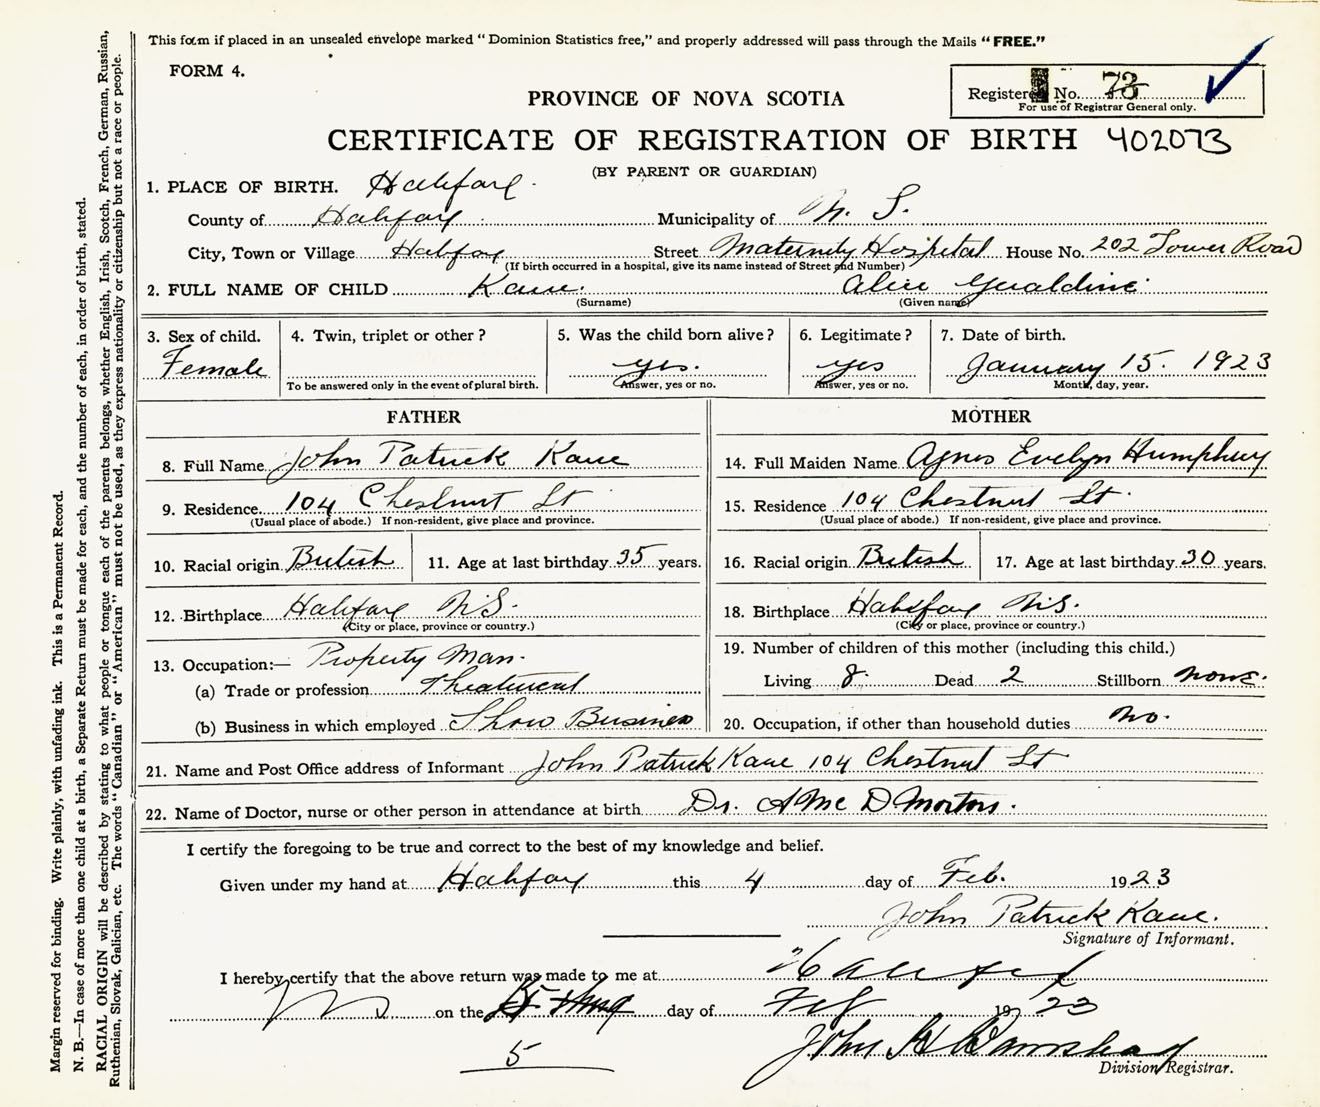 This form if placed in an unsealed envelope marked “Dominion Statistics free,” and properly addressed will pass through the Mails “FREE.”
FORM 4.
Registered No. 73
For use of Registrar General only.
PROVINCE OF NOVA SCOTIA
CERTIFICATE OF REGISTRATION OF BIRTH 402073
(BY PARENT OR GUARDIAN)
1. PLACE OF BIRTH. Halifax.
County of Halifax. Municipality of N. S.
City, Town or Village Halifax Street Maternity Hospital House No. 202 Tower Road
(If birth occurred in a hospital, give its name instead of Street and Number)
2. FULL NAME OF CHILD Kane. Alice Geraldine.
(Surname) (Given name)
3. Sex of child. 4. Twin, triplet or other? 5. Was the child born alive? 6. Legitimate? 7. Date of birth.
Female yes. yes January 15. 1923
To be answered only in the event of plural birth. Answer, yes or no. Answer, yes or no. Month, day, year.
FATHER
8. Full Name John Patrick Kane
9. Residence. 104 Chestnut St
(Usual place of abode.) If non-resident, give place and province.
10. Racial origin British 11. Age at last birthday 35 years.
12. Birthplace Halifax N.S.
(City or place, province or country.)
13. Occupation:— Property Man.
(a) Trade or profession Theatrical
(b) Business in which employed Show Business
MOTHER
14. Full Maiden Name Agnes Evelyn Humphrey
15. Residence 104 Chestnut St.
(Usual place of abode.) If non-resident, give place and province.
16. Racial origin British 17. Age at last birthday 30 years.
18. Birthplace Halifax N.S.
(City or place, province or country.)
19. Number of children of this mother (including this child.)
Living 8. Dead 2 Stillborn none.
20. Occupation, if other than household duties no.
21. Name and Post Office address of Informant John Patrick Kane 104 Chestnut St
22. Name of Doctor, nurse or other person in attendance at birth Dr. A Mc D Morton.
I certify the foregoing to be true and correct to the best of my knowledge and belief.
Given under my hand at Halifax this 4 day of Feb. 1923
John Patrick Kane.
Signature of Informant.
I hereby certify that the above return was made to me at Halifax
NS on the day of Feb 1923
5
John H
Division Registrar.
Margin reserved for binding. Write plainly, with unfading ink. This is a Permanent Record.
N. B.—In case of more than one child at a birth, a Separate Return must be made for each, and the number of each, in order of birth, stated.
RACIAL ORIGIN will be described by stating to what people or tongue each of the parents belongs, whether English, Irish, Scotch, French, German, Russian,
Ruthenian, Slovak, Galician, etc. The words “Canadian” or “American” must not be used, as they express nationality or citizenship but not a race or people.